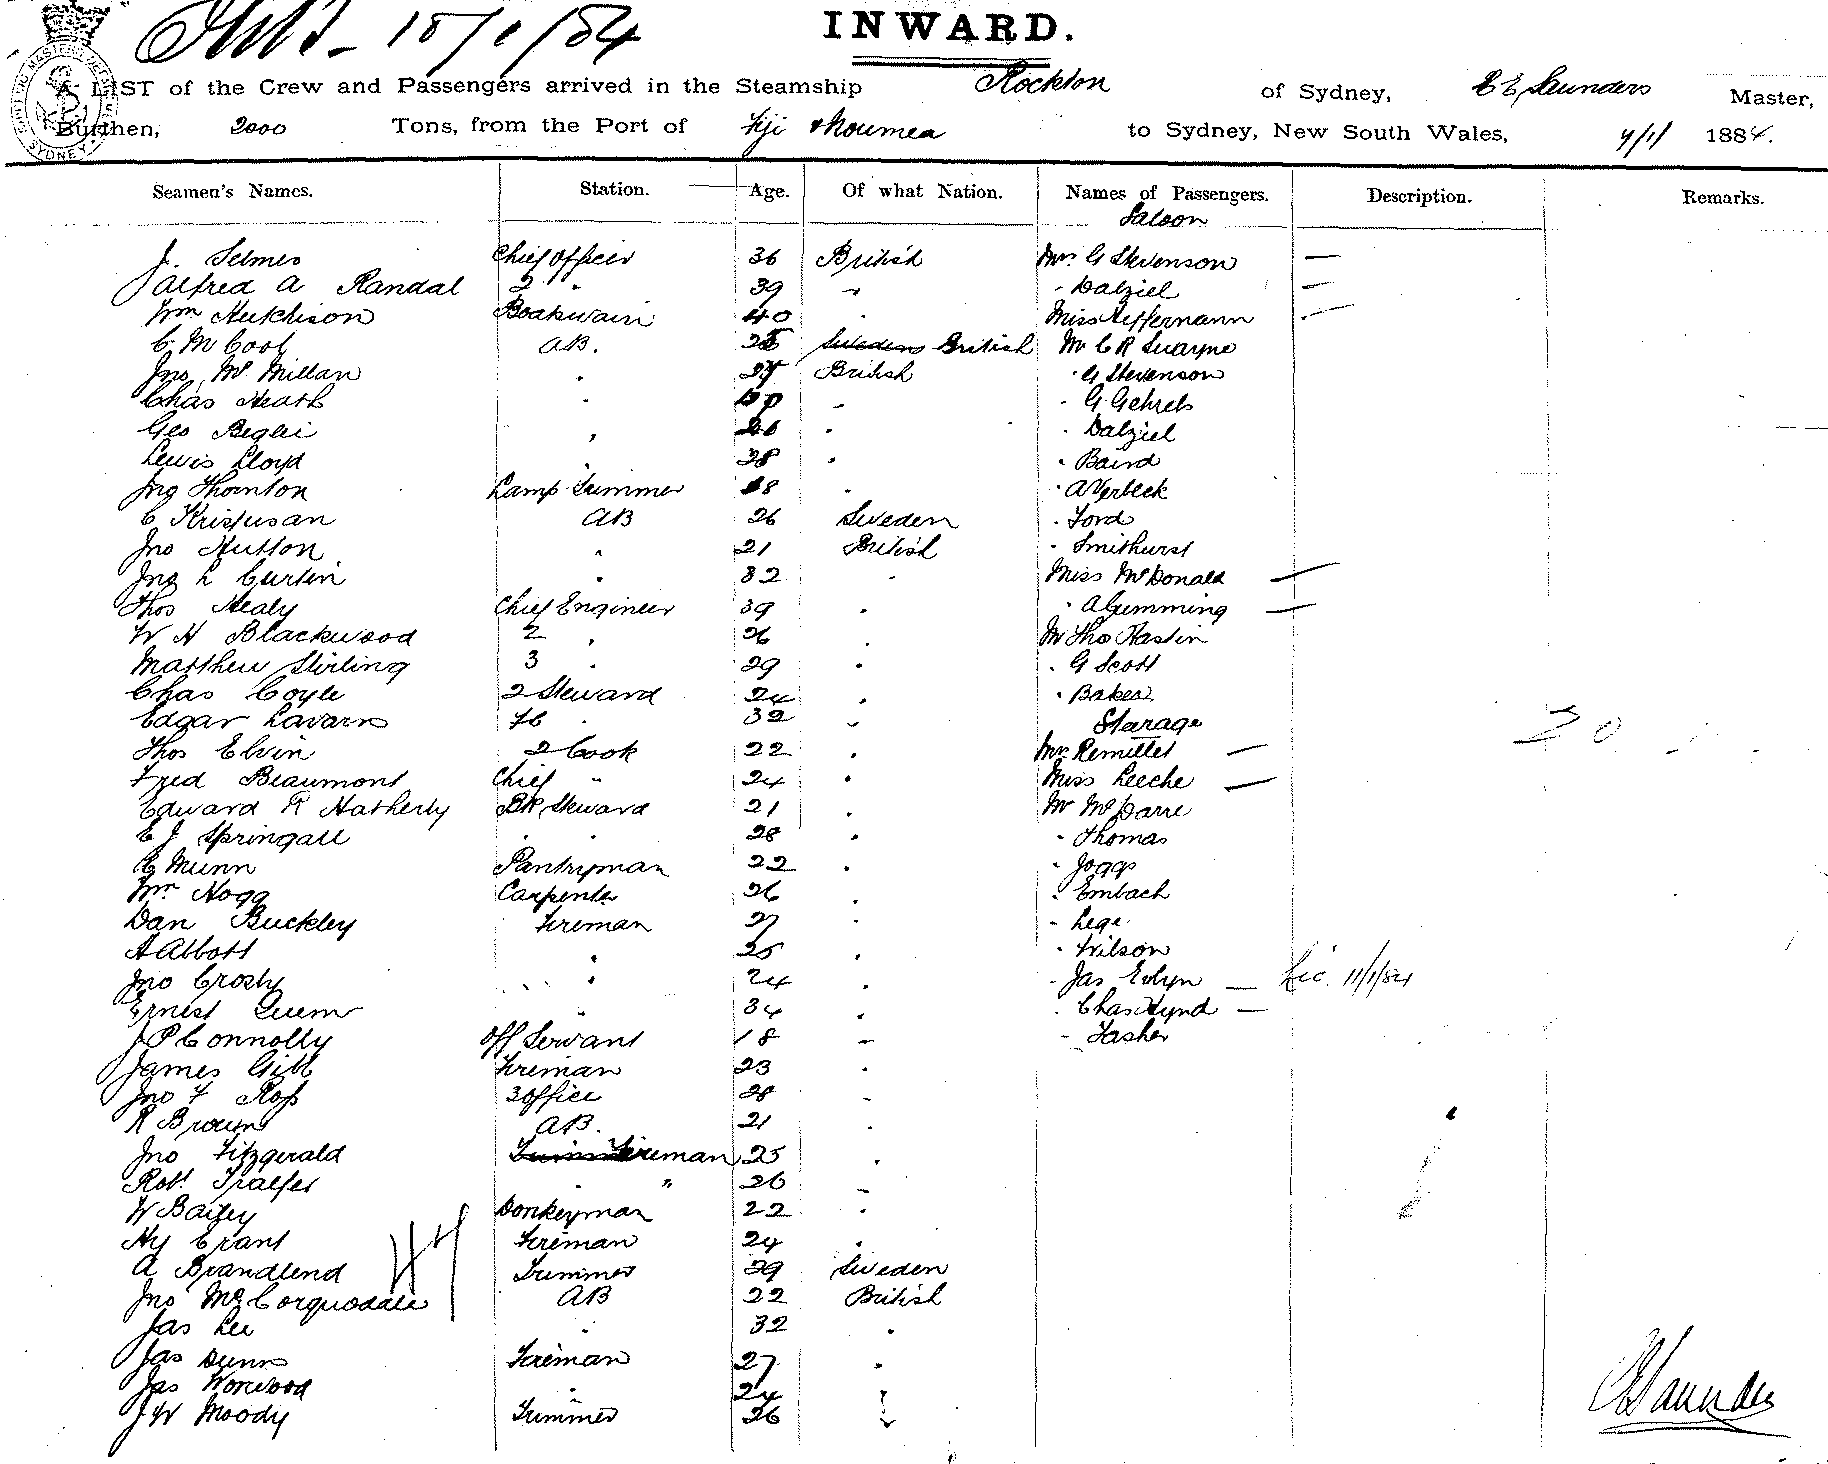 15/1/84
INWARD.
A LIST of the Crew and Passengers arrived in the Steamship Rockton of Sydney, Saunders Master,
Burthen, 2000 Tons, from the Port of Fiji & Noumea to Sydney, New South Wales, 1884.
Seamen's Names. Station. Age. Of what Nation. Names of Passengers. Description. Remarks.
Saloon
J. Selmes Chief Officer 36 British Mrs G Stevenson —
Alfred A Randal 2 " 39 " " Dalziel —
Wm Hutchison Boatswain 40 " Miss Heffernann —
C McCool AB. British Mr C R Swayne
Jno Mc Millan " British " G Stevenson
Chas Heath " " " G Gehrels
Geo Beglei " " " Dalziel
Lewis Lloyd " 28 " " Baird
Jno Thornton Lamp Trimmer 18 " " Averbeck
C AB 26 Sweden " Ford
Jno Hutton " 21 British " Smithurst
Jno L Curtin " 32 " Miss McDonald —
Thos Healy Chief Engineer 39 " " A Cumming —
W H Blackwood 2 " 26 " Mr Tho Hastin
Matthew Stirling 3 " 29 " " G Scott
Chas Coyle 2 Steward 24 " " Baker
Edgar Lavars " 32 " Starage 20
Thos Elvin 2 Cook 22 " Mrs —
Fred Beaumont Chief " 24 " Miss Leeche —
Edward R Hatherly BR Steward 21 " Mr
E J Springall " " 28 " " Thomas
E Munn Pantryman 22 " " Joggs
Wm Hogg Carpenter 26 " " Embach
Dan Buckley Fireman 27 " " Lege
A Abbott " 25 " " Wilson
Jno Crosby " 24 " " Jas Evlyn — 11/1/84
Ernest " 34 " " Chas Hynd —
J P Connolly Off Servant 18 " " Tasher
James Gibb Fireman 23 "
Jno F Ross 3 Office 28 "
R Brown AB. 21 "
Jno Fitzgerald Fireman 25 "
Robt " " 26 "
W Bailey Donkeyman 22 "
Hy Grant Fireman 24 "
A Brandlend Trimmer 29 Sweden
Jno McCorquodale AB 22 British
Jas Lee " 32 "
Jas Dunn Fireman 27 "
Jas Worwood " 24 "
J W Moody Trimmer 26
Saunders